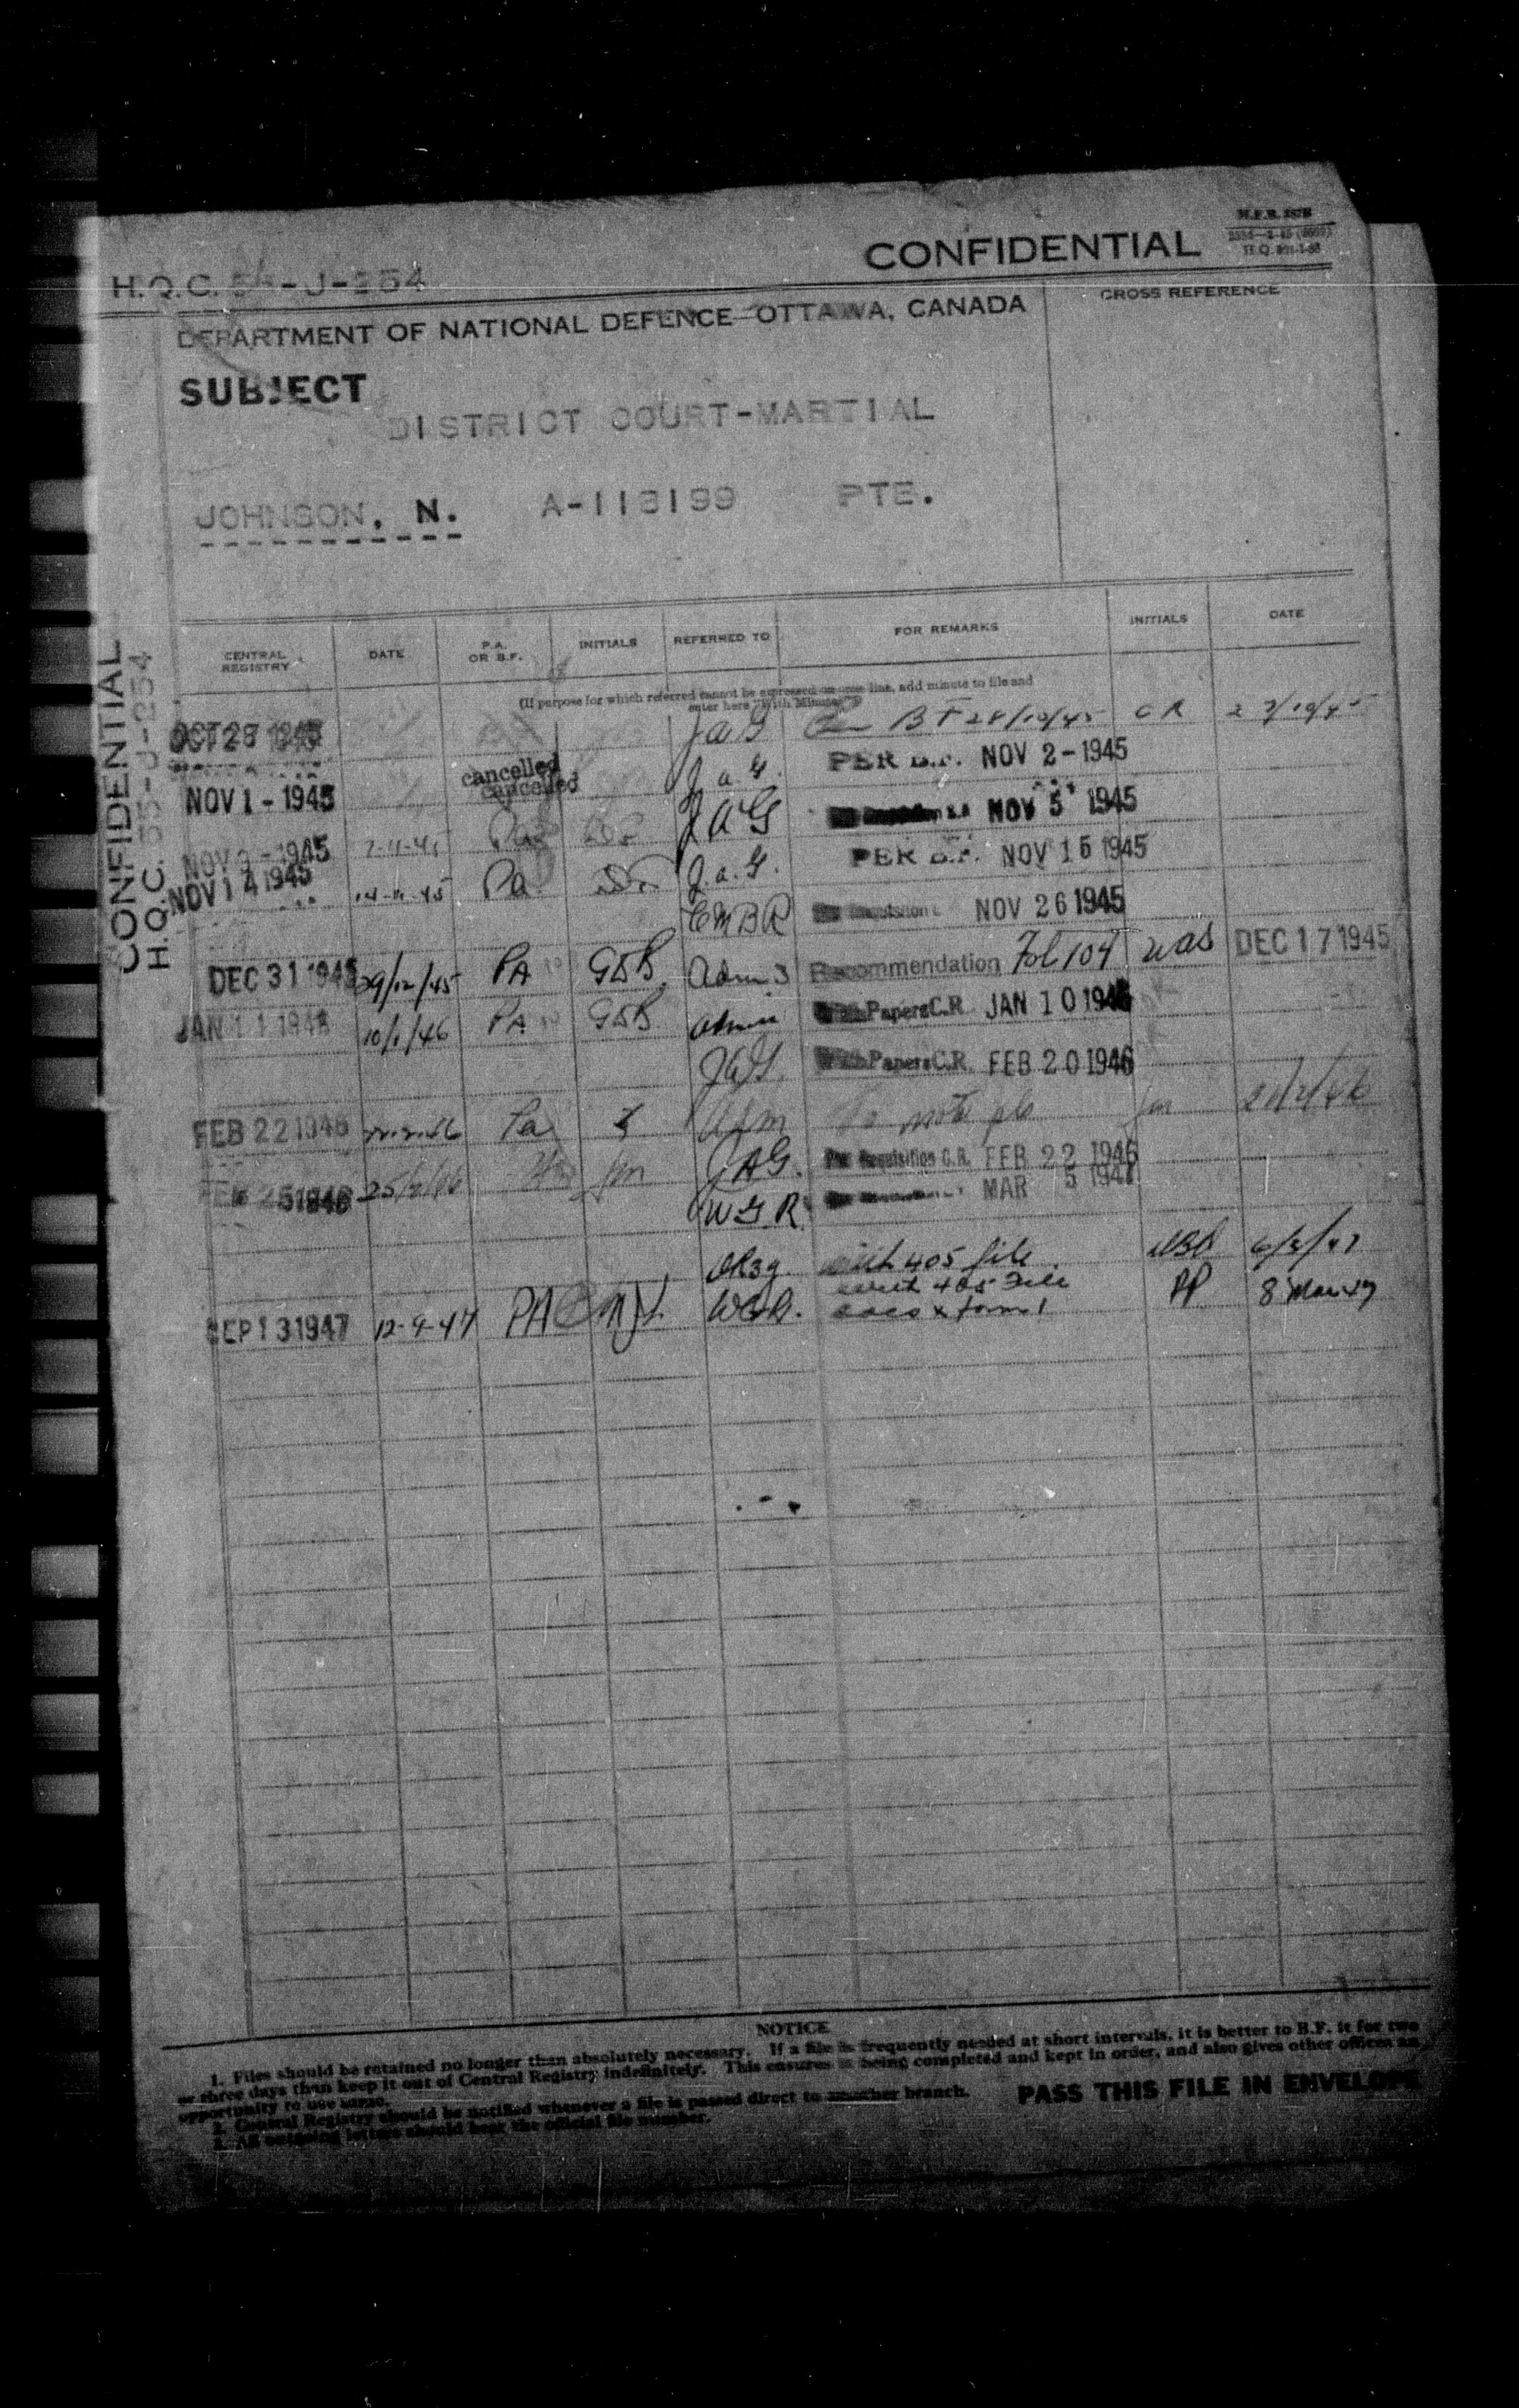 M.F.B. 287B
H.Q.C. 55-J-254 CONFIDENTIAL
DEPARTMENT OF NATIONAL DEFENCE—OTTAWA, CANADA
CROSS REFERENCE
SUBJECT
DISTRICT COURT-MARTIAL
JOHNSON, N. A-113199 PTE.
CONFIDENTIAL
H.Q.C. 55-J-254
CENTRAL REGISTRY DATE P.A. OR B.F. INITIALS REFERRED TO FOR REMARKS INITIALS DATE
(If purpose for which referred cannot be expressed on one line, add minute to file and
enter here "With Minute")
JAG BF 28/10/45 CR 23/10/45
cancelled J.a.G. PER B.F. NOV 2-1945
NOV 1-1945 cancelled JAG NOV 5 1945
NOV 2-1945 2-11-45 Pa J.a.G. PER B.F. NOV 15 1945
NOV 14 1945 14-11-45 Pa
CMBR NOV 26 1945
DEC 31 1945 29/12/45 PA GDB Adm 3 Recommendation Fol 104 was DEC 17 1945
JAN 11 1946 10/1/46 PA GDB Admin With Papers C.R. JAN 10 1946
JAG With Papers C.R. FEB 20 1946
FEB 22 1946 22.2.46 Pa Adm To note pls 21/2/46
FEB 25 1946 25/2/46 JAG. Per Requisition C.R. FEB 22 1946
WGR MAR 5 1947
with 405 file 6/3/47
with 405 file
SEP 13 1947 12-9-47 PA PP 8 Mar 47
NOTICE
1. Files should be retained no longer than absolutely necessary. If a file is frequently needed at short intervals, it is better to B.F. it for two
or three days than keep it out of Central Registry indefinitely. This ensures is being completed and kept in order, and also gives other offices an
opportunity to use same.
2. Central Registry should be notified whenever a file is passed direct to another branch.
3. All outgoing letters should bear the official file number.
PASS THIS FILE IN ENVELOPE